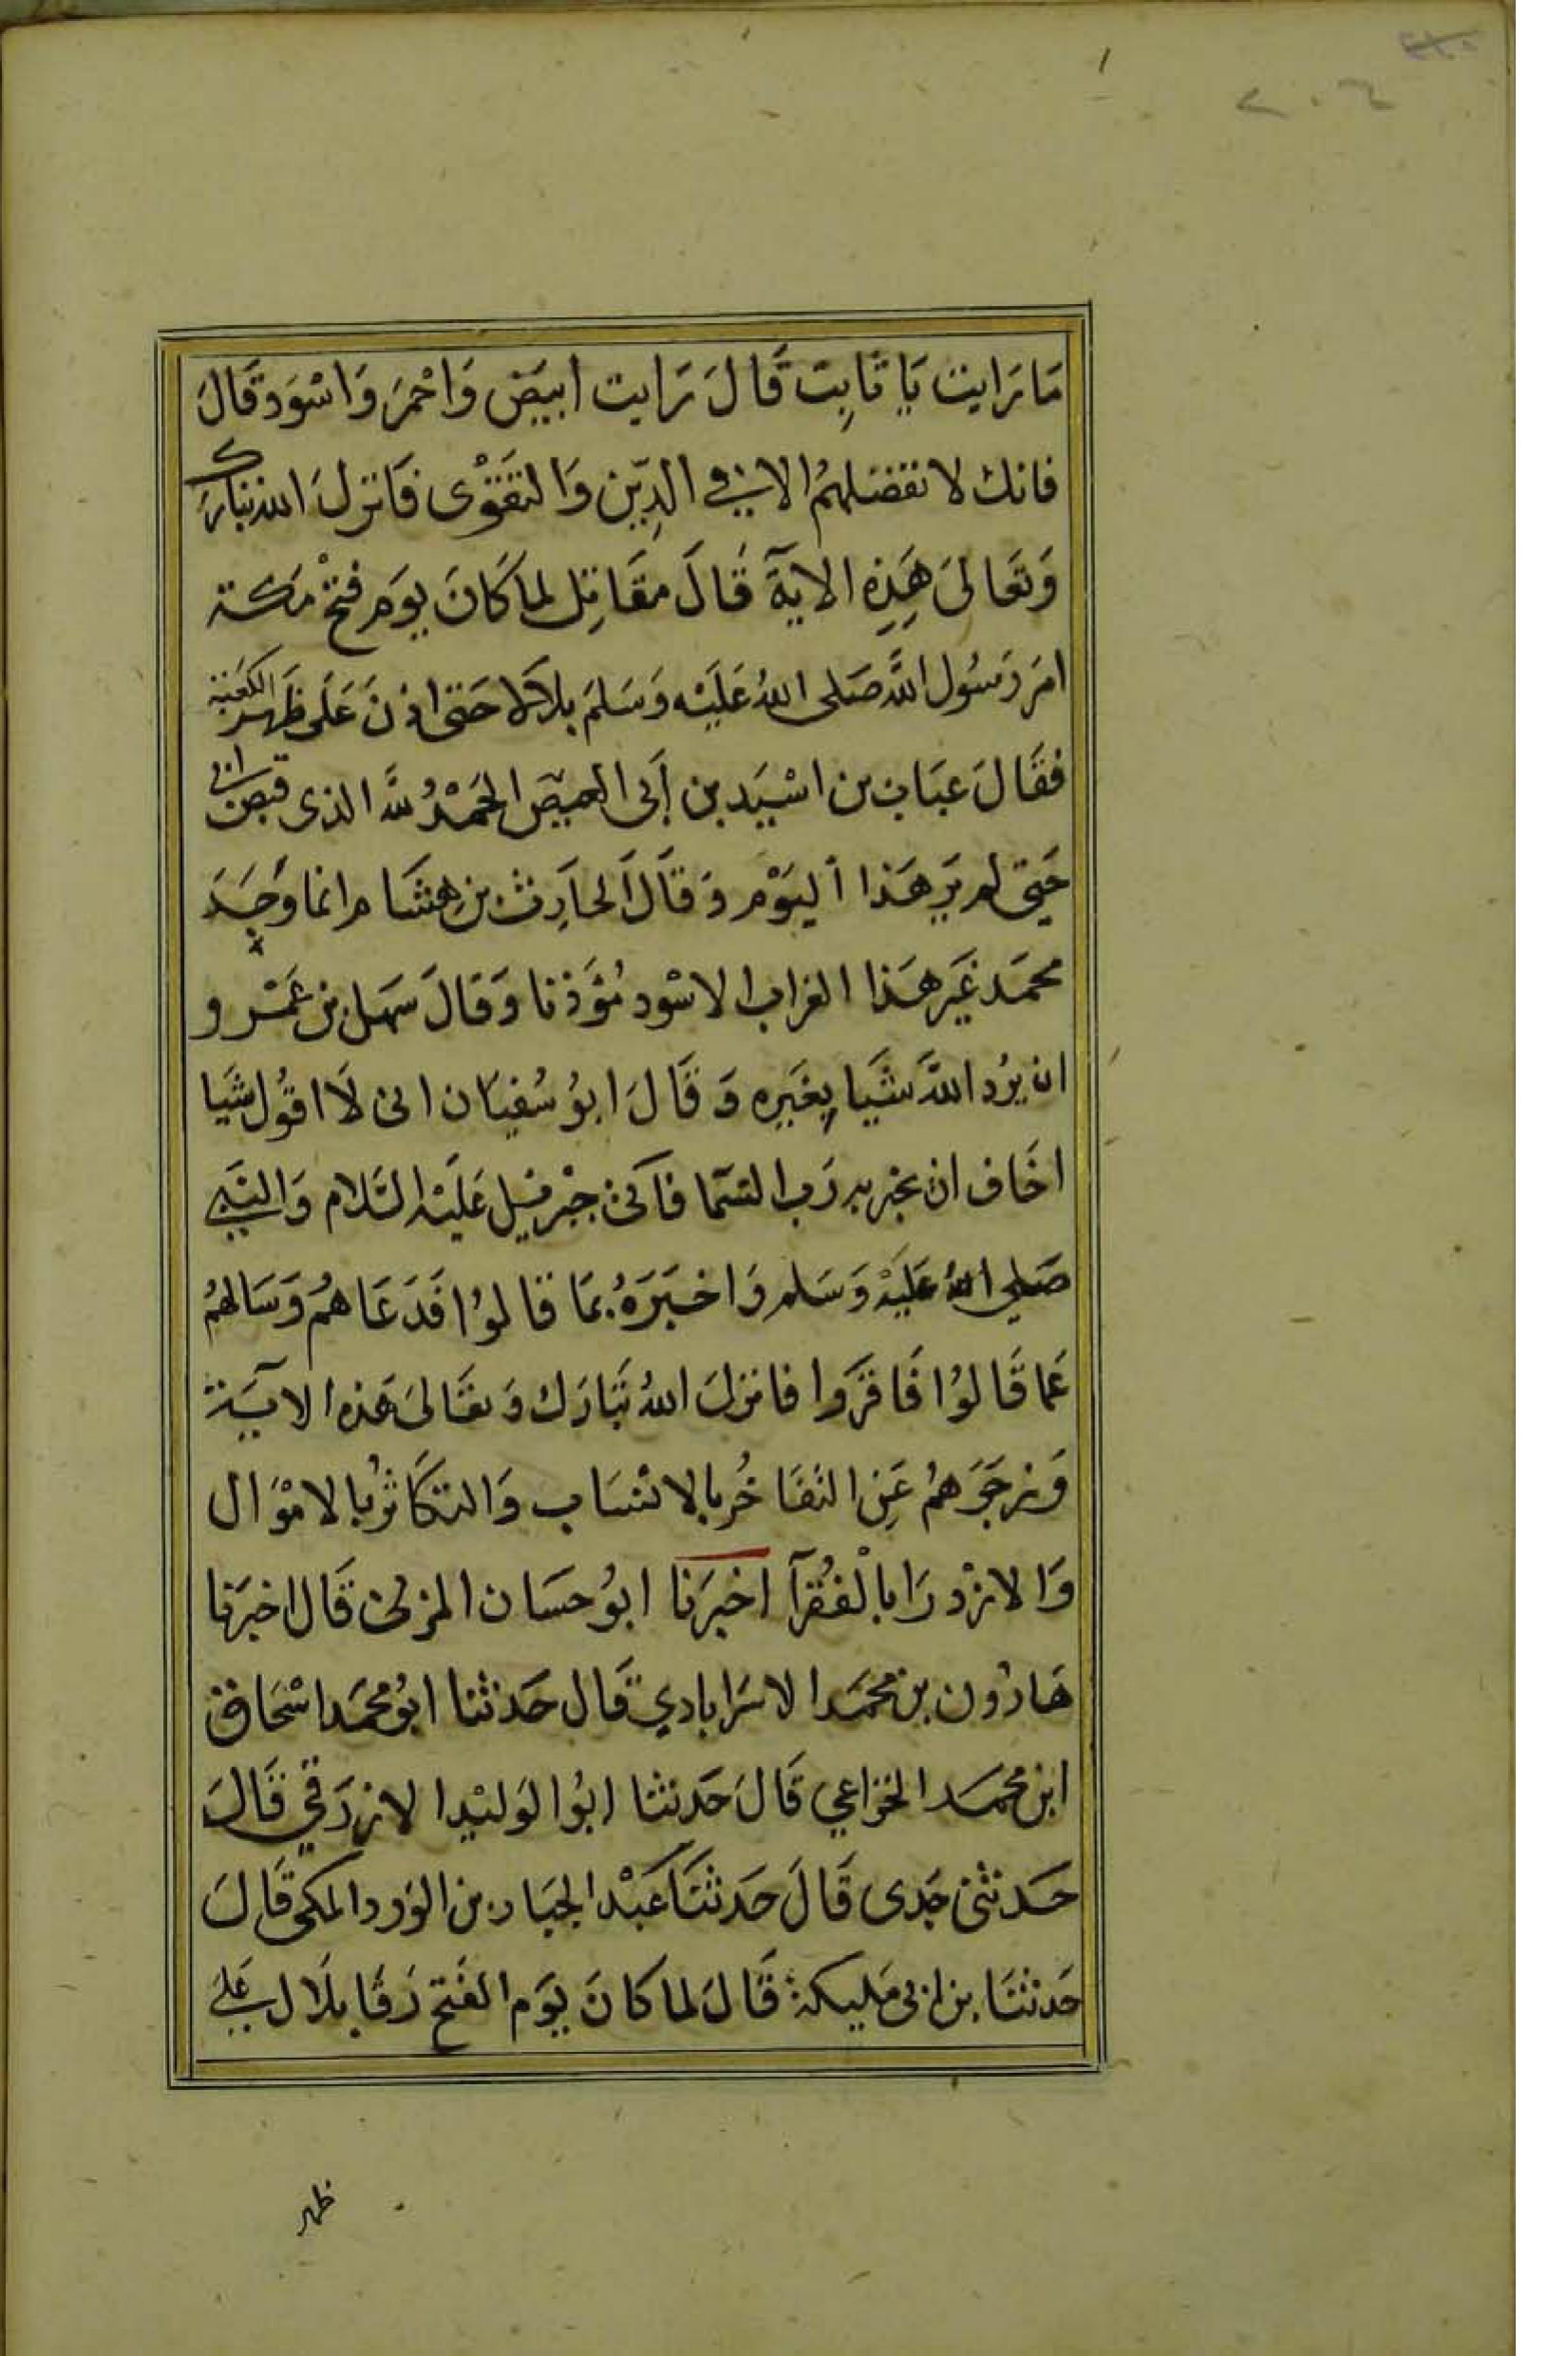 ٢٠٤
مَا رَايت يَا ثَابِت قَالَ رَايت ابيَض وَاحْمَرَ وَاسْوَد قَالَ
فانك لا تفضلهمُ الا في الدِّين وَالتقْوى فَانزلَ الله تبارك
وَتعَالىَ هَذِهِ الايَةَ قَالَ مقَاتِل لما كَانَ يوَم فتحْ مَكة
امَر رَسُول اللَّه صَلى اللهُ عَليْه وَسَلمَ بلالا حَتى اذن عَلى ظهر الكعَبة
فقَالَ عبَاب بن اسْيَد بن أبى العيص الحمَدْ للَّه الذى قبض ابى
حَتى لم يرَ هَذا اليوَْم وَقَالَ الحارِث بن هِشَام انما وَجَدَ
محمَد غيَر هَذا الغراب الاسْود مُؤذنا وَقالَ سَهل بن عَمْرو
ان يرُد اللَّه شَيا يغَيره وَقَالَ ابوُ سُفيَان انى لَا اقوُل شَيا
اخَاف ان يخبر به رَب السَما فاتى جبْرئيل عَليْه السَّلام وَالنبَي
صَلى اللهُ عَليْه وَسَلم وَاخبَرَهُ بمَا قَالوُا فَدَعَاهُم وَسَالهمُ
عَما قَالوُا فَاقرَّوا فانزلَ اللهُ تبَارَك وَتعَالىَ هَذه الايَة
وَزجَرَهمُ عَنِ التفَاخُر بالانسَاب وَالتكَاثرُ بالامْوَال
وَالازدرَا بالْفُقرَآ اخبرَنا ابوُ حسَان المزنى قَال اخبرَنا
هَارُون بن محمَد الاسرَابادي قَال حَدثنا ابوُ محمَد اسْحَاق
ابن محمَد الخزاعي قَال حَدثنا ابوُ الوَليْد الازرَقي قَالَ
حَدثنى جَدى قَالَ حَدثنَا عَبْد الجبَار بن الوَرد المكى قَالَ
حَدثنَا بن ابى مَليكة قَالَ لما كَانَ يوَم الفَتح رَقا بلَال عَلي
ظهر